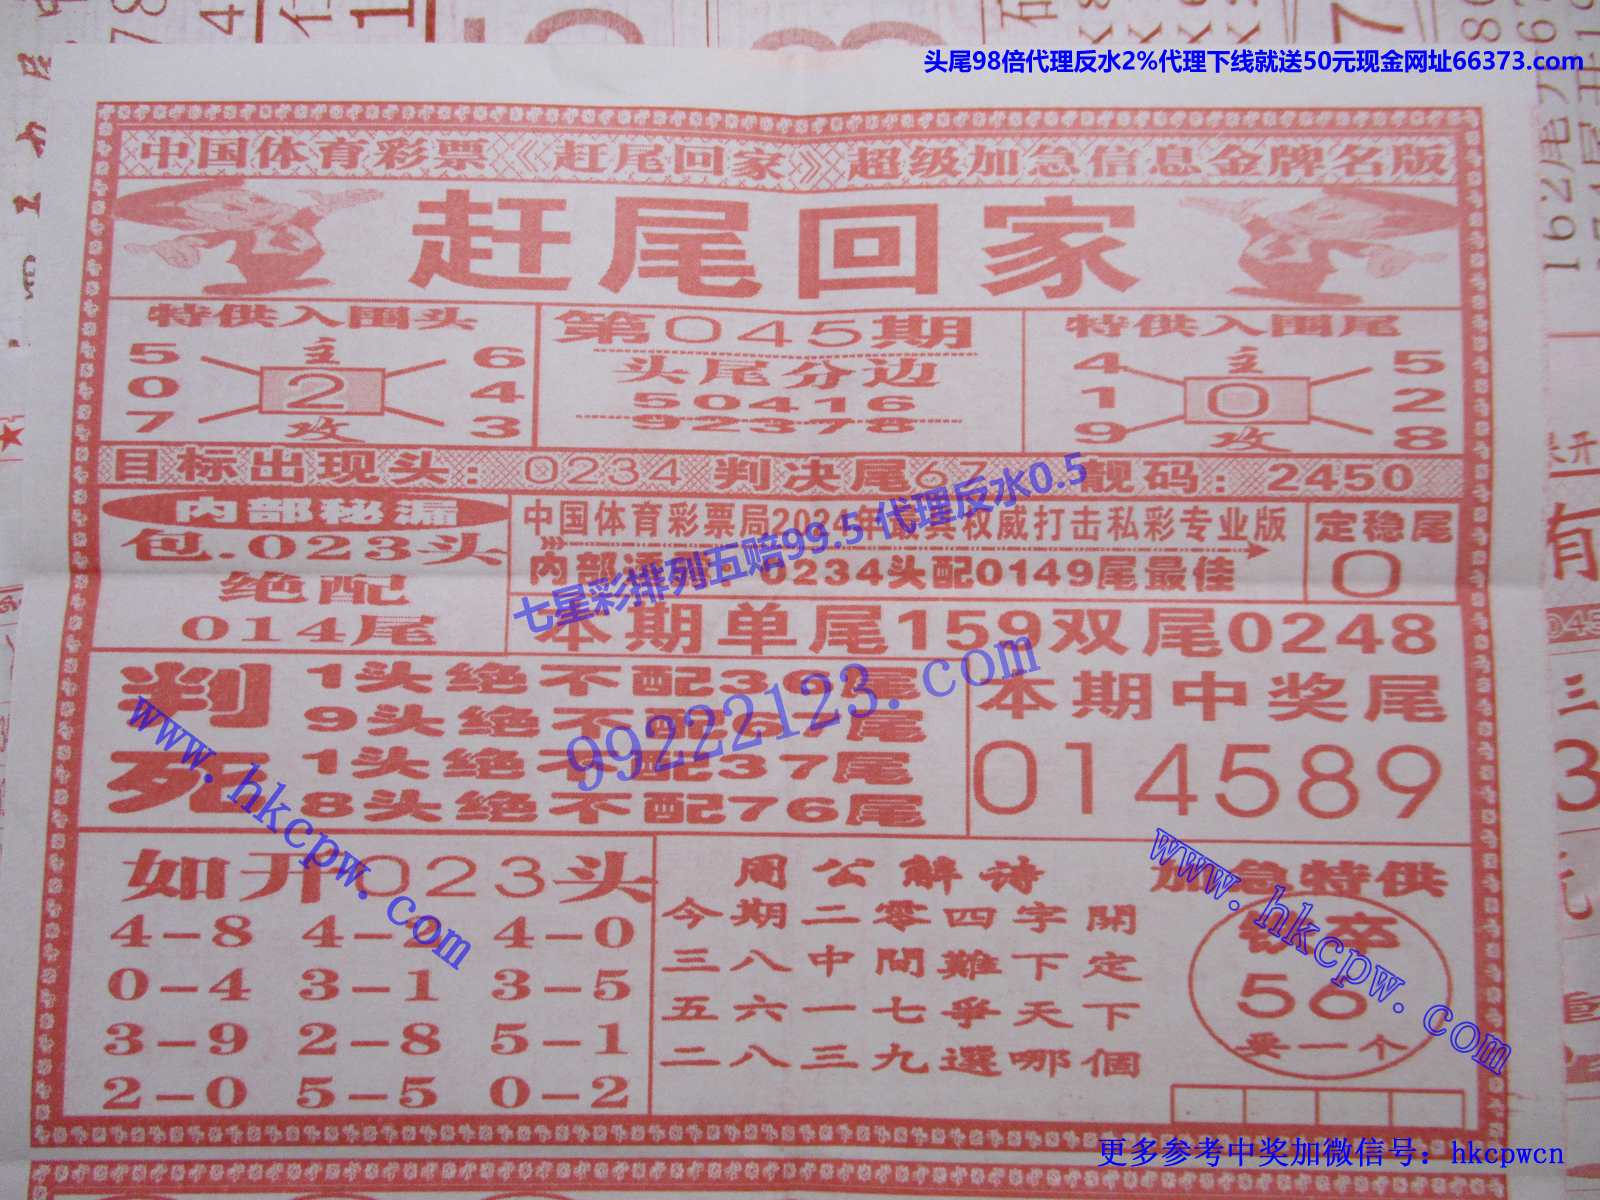 头尾98倍代理反水2%代理下线就送50元现金网址66373.com
中国体育彩票《赶尾回家》超级加急信息金牌名版
赶尾回家
特供入围头
5 主 6
0 2 4
7 攻 3
第045期
头尾分边
50416
92378
特供入围尾
4 主 5
1 0 2
9 攻 8
目标出现头：0234 判决尾67 靓码：2450
内部秘漏
包.023头
绝配
014尾
中国体育彩票局2024年最具权威打击私彩专业版
内部 0234头配0149尾最佳
定稳尾
0
七星彩排列五赔99.5 代理反水0.5
本期单尾159双尾0248
判死
1头绝不配36尾
9头绝不配67尾
1头绝不配37尾
8头绝不配76尾
99222123.com
本期中奖尾
014589
www.hkcpw.com
如开023头
4-8 4- 4-0
0-4 3-1 3-5
3-9 2-8 5-1
2-0 5-5 0-2
周公解诗
今期二零四字開
三八中間難下定
五六一七爭天下
二八三九選哪個
加急特供
56
卖一个
www.hkcpw.com
更多参考中奖加微信号：hkcpwcn